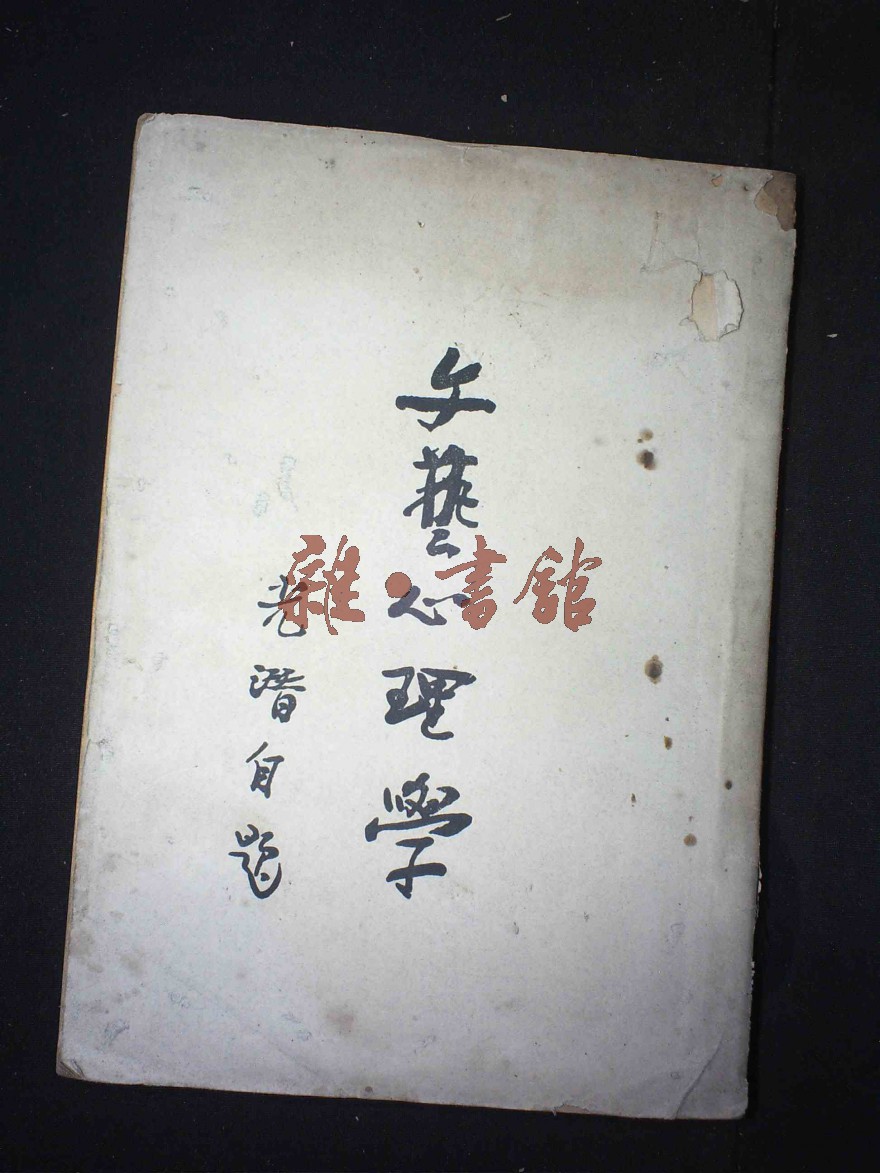 文藝心理學
光潛自題
雜·書館